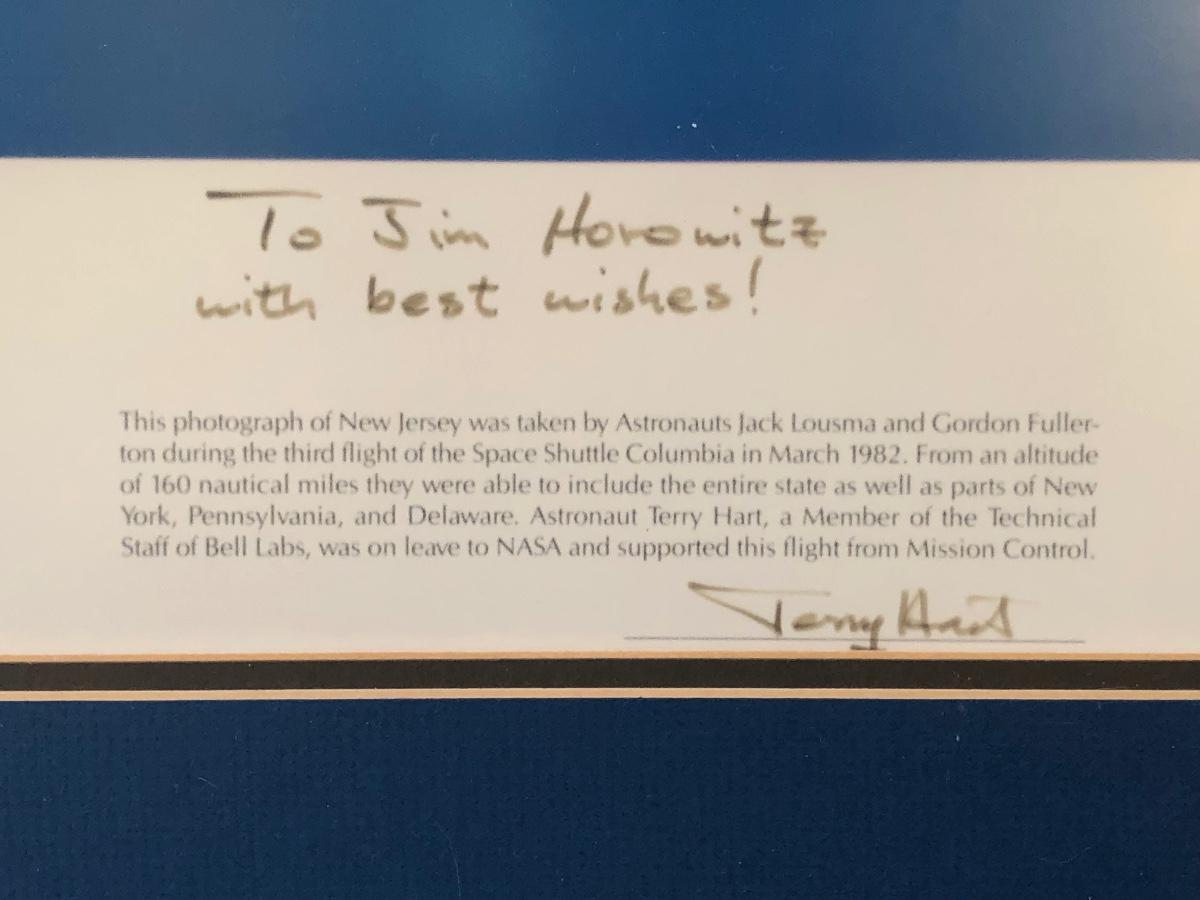 To Jim Horowitz
with best wishes!
This photograph of New Jersey was taken by Astronauts Jack Lousma and Gordon Fuller-
ton during the third flight of the Space Shuttle Columbia in March 1982. From an altitude
of 160 nautical miles they were able to include the entire state as well as parts of New
York, Pennsylvania, and Delaware. Astronaut Terry Hart, a Member of the Technical
Staff of Bell Labs, was on leave to NASA and supported this flight from Mission Control.
Terry Hart